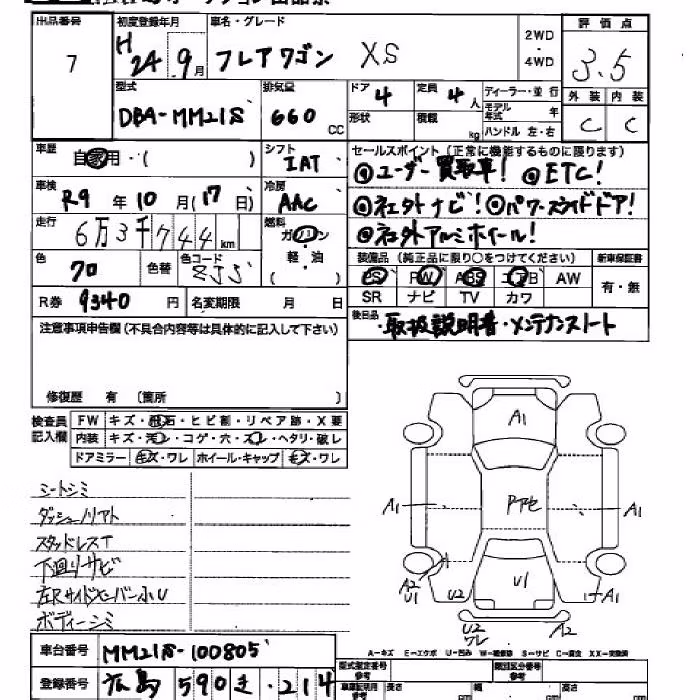 出品番号 初度登録年月 車名・グレード 2WD・4WD 評価点
7 H24 9月 フレアワゴン XS 3.5
型式 排気量 ドア 4 定員 4人 ディーラー・並行 外装 内装
DBA-MM21S 660 CC 形状 積載 kg モデル年式 年 C C
ハンドル 左・右
車歴 自家用・( ) シフト IAT セールスポイント(正常に機能するものに限ります)
車検 R9年10月(17日) 冷房 AAC ◎ユーザー買取車! ◎ETC!
走行 6万3千744km 燃料 ガソリン・軽・油 ( ) ◎社外ナビ! ◎パワースライドドア!
◎社外アルミホイール!
色 70 色替 色コード ZJS 装備品(純正品に限り○をつけてください) 新車保証書
PS PW ABS エアB AW 有・無
R券 9340円 名変期限 月 日 SR ナビ TV カワ
注意事項申告欄(不具合内容等は具体的に記入して下さい) 後日品 ・取扱説明書・メンテナンスノート
修復歴 有 〔箇所 〕
検査員記入欄 FW キズ・飛石・ヒビ割・リペア跡・X要
内装 キズ・汚レ・コゲ・穴・スレ・ヘタリ・破レ
ドアミラー キズ・ワレ ホイール・キャップ キズ・ワレ
シートシミ
ダッシュノリアト
スタッドレスT
下廻りサビ
左Rサイドスーパー小U
ボディーシミ
A1
A1 A1
A2 U1 U2 U1 A1
U2 ワレ A2
車台番号 MM21S-100805
A-キズ E-エクボ U-凹み W-補修跡 S-サビ C-腐食 XX-交換済
登録番号 広島 590 そ・214 型式指定番号 類別区分番号
車庫証明用 長さ cm 幅 cm 高さ cm